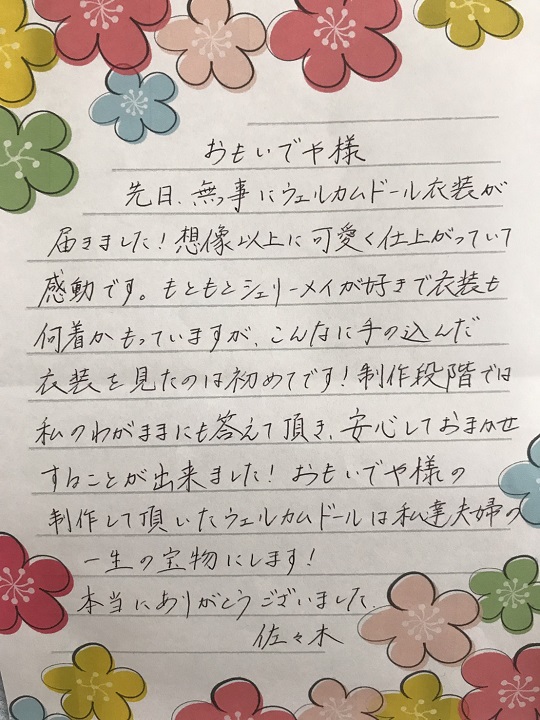 おもいでや様
先日、無事にウェルカムドール衣装が
届きました！想像以上に可愛く仕上がっていて
感動です。もともとシェリーメイが好きで衣装も
何着かもっていますが、こんなに手の込んだ
衣装を見たのは初めてです！制作段階では
私のわがままにも答えて頂き、安心しておまかせ
することが出来ました！おもいでや様の
制作して頂いたウェルカムドールは私達夫婦の
一生の宝物にします！
本当にありがとうございました。
佐々木